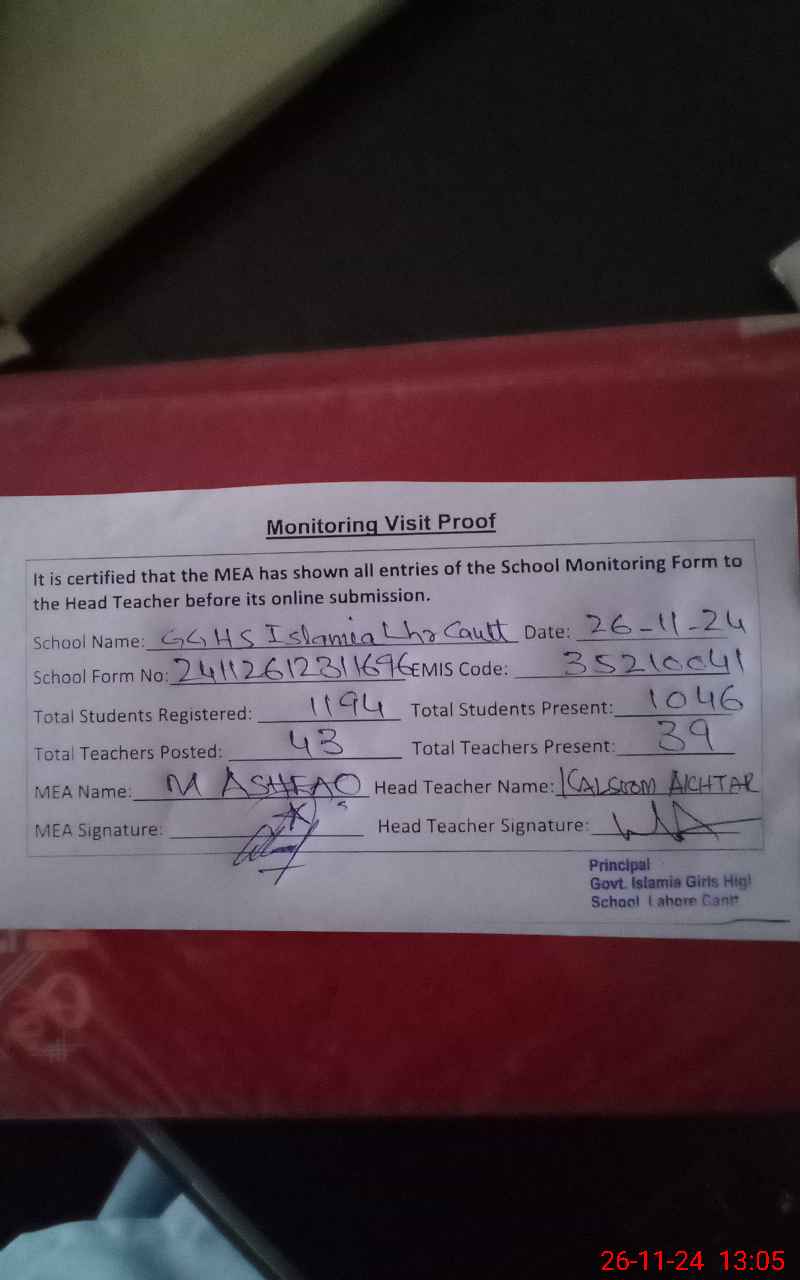 Monitoring Visit Proof
It is certified that the MEA has shown all entries of the School Monitoring Form to
the Head Teacher before its online submission.
School Name: GGHS Islamia Lhr Cantt Date: 26-11-24
School Form No: 24112612311696 EMIS Code: 35210041
Total Students Registered: 1194 Total Students Present: 1046
Total Teachers Posted: 43 Total Teachers Present: 39
MEA Name: M ASHFAQ Head Teacher Name: KALSOOM AKHTAR
MEA Signature: Head Teacher Signature:
Principal
Govt. Islamia Girls High
School Lahore Cantt
26-11-24 13:05